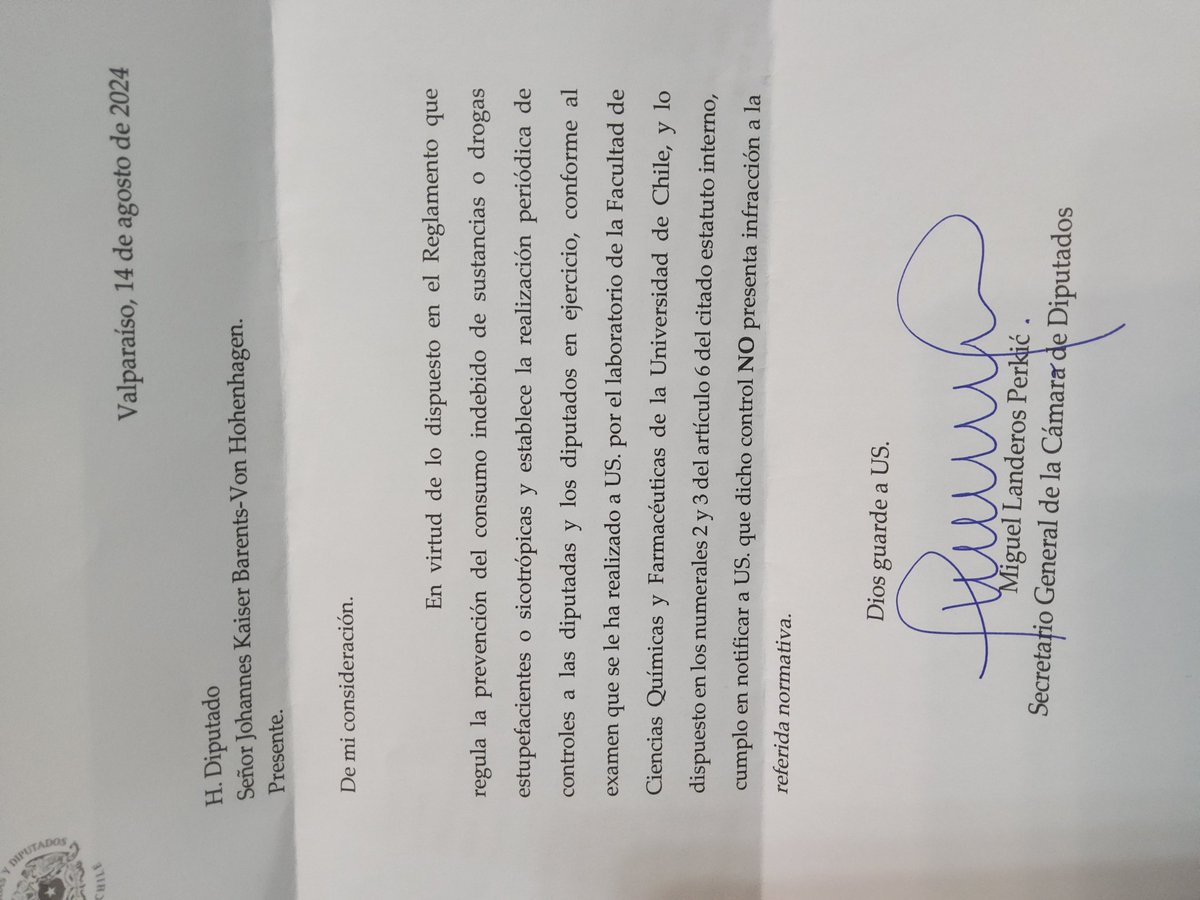 S Y DIPUTADOS
CHILE
Valparaíso, 14 de agosto de 2024
H. Diputado
Señor Johannes Kaiser Barents-Von Hohenhagen.
Presente.
De mi consideración.
En virtud de lo dispuesto en el Reglamento que
regula la prevención del consumo indebido de sustancias o drogas
estupefacientes o sicotrópicas y establece la realización periódica de
controles a las diputadas y los diputados en ejercicio, conforme al
examen que se le ha realizado a US. por el laboratorio de la Facultad de
Ciencias Químicas y Farmacéuticas de la Universidad de Chile, y lo
dispuesto en los numerales 2 y 3 del artículo 6 del citado estatuto interno,
cumplo en notificar a US. que dicho control NO presenta infracción a la
referida normativa.
Dios guarde a US.
Miguel Landeros Perkić
Secretario General de la Cámara de Diputados